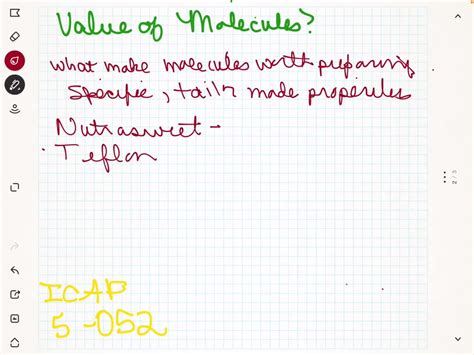 Value of Molecules?
what make molecules worth preparing
specific, tailor made properties
Nutrasweet -
Teflon
2/3
ICAP
5-052